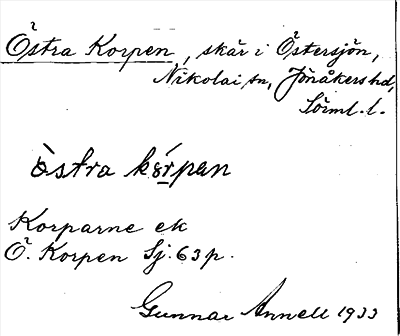 Östra Korpen, skär i Östersjön,
Nikolai sn, Jönåkers hd,
Sörml. l.
östra kórpen
Korparne ek
Ö. Korpen Sj. 63 p.
Gunnar Annell 1933